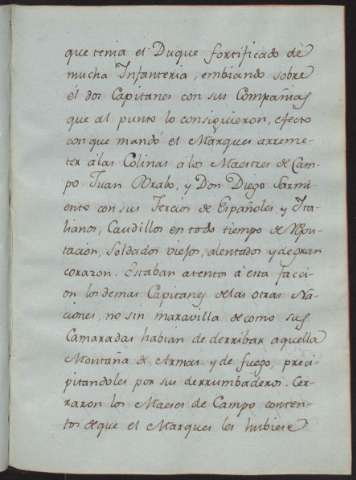 que tenia el Duque fortificado de
mucha Infanteria, embiando sobre
él dos Capitanes con sus Compañias
que al punto lo consiguieron, efecto
con que mandó el Marques arreme-
ter á las Colinas á los Maestres de Cam-
po Juan Brabo, y Don Diego Sarmi-
ento con sus Tercios de Españoles y Ita-
lianos, Caudillos en todo tiempo de repu-
tacion, Soldados viejos, alentados y de gran
corazon. Estaban atentos á esta facci-
on los demas Capitanes de las otras Na-
ciones, no sin maravilla de como sus
Camaradas habian de derribar aquella
Montaña de Armas y de fuego, preci-
pitandoles por sus derrumbaderos. Cer-
raron los Maeses de Campo conten-
tos de que el Marques les hubiese